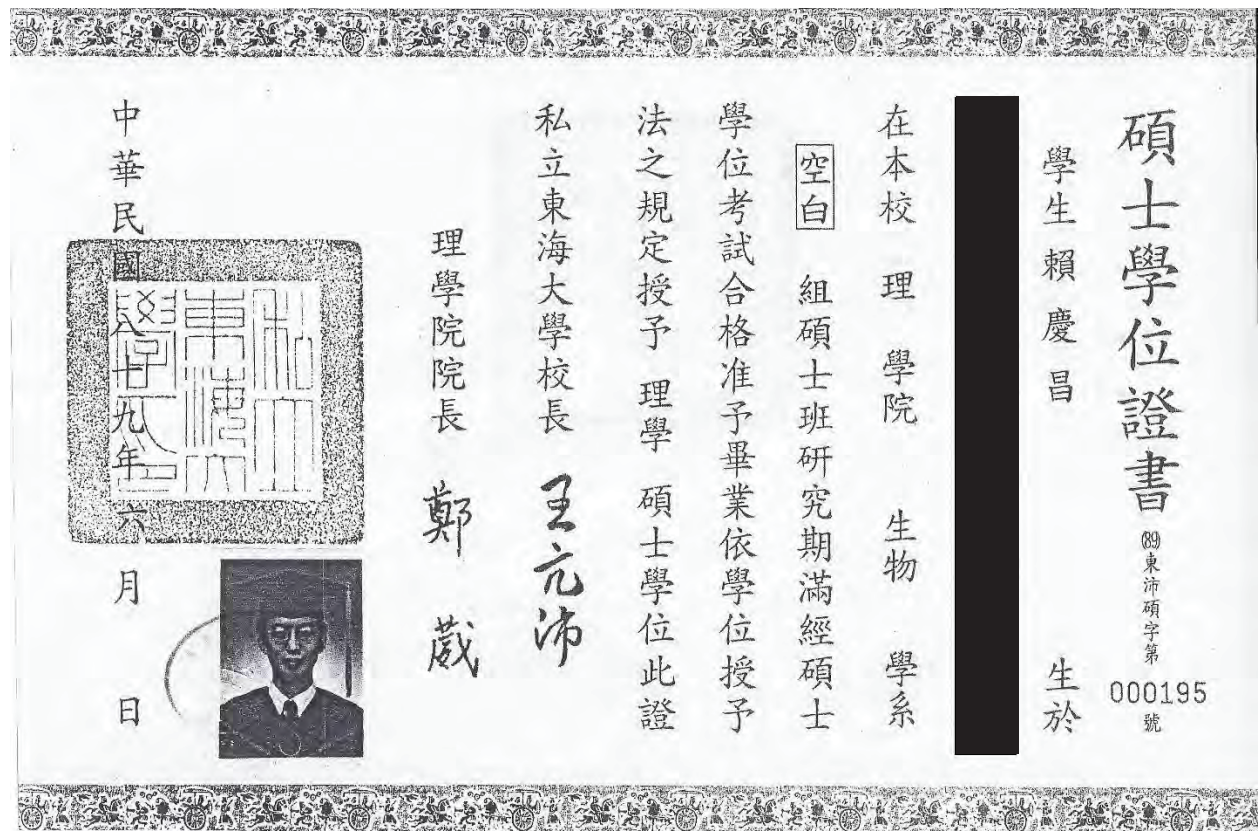 碩士學位證書
(89)東沛碩字第000195號
學生賴慶昌 生於
在本校 理 學院 生物 學系
空白 組碩士班研究期滿經碩士
學位考試合格准予畢業依學位授予
法之規定授予 理學 碩士學位此證
私立東海大學校長 王亢沛
理學院院長 鄭 葳
私立東海大學之印
中華民國八十九年六月 日